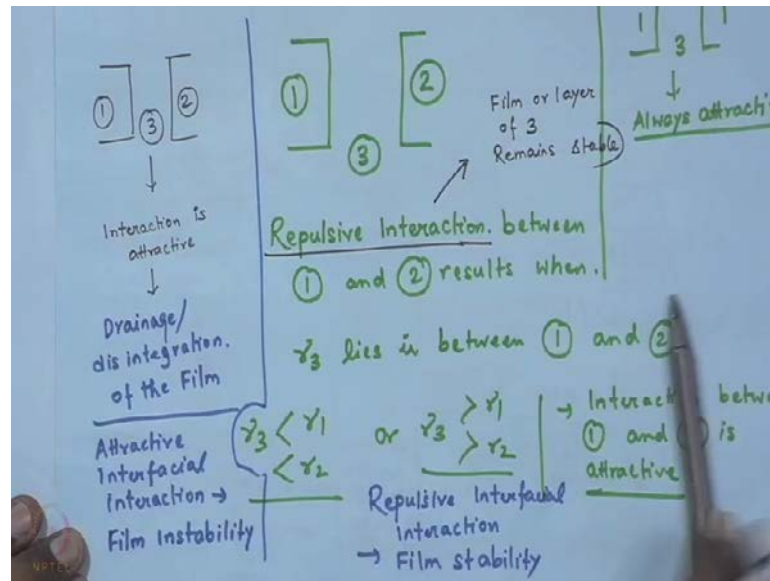 ① ③ ②
Interaction is
attractive
Drainage/
disintegration.
of the Film
Attractive
Interfacial
interaction →
Film Instability
① ③ ②
Film or layer
of 3
Remains stable
Repulsive Interaction. between
① and ② results when.
γ3 lies in between ① and ②
γ3 < γ1
< γ2
or γ3 > γ1
> γ2
→ Interac
betwe
① and is
attractive
Repulsive Interfacial
Interaction
→ Film stability
1 3 1
Always attracti
NPTEL